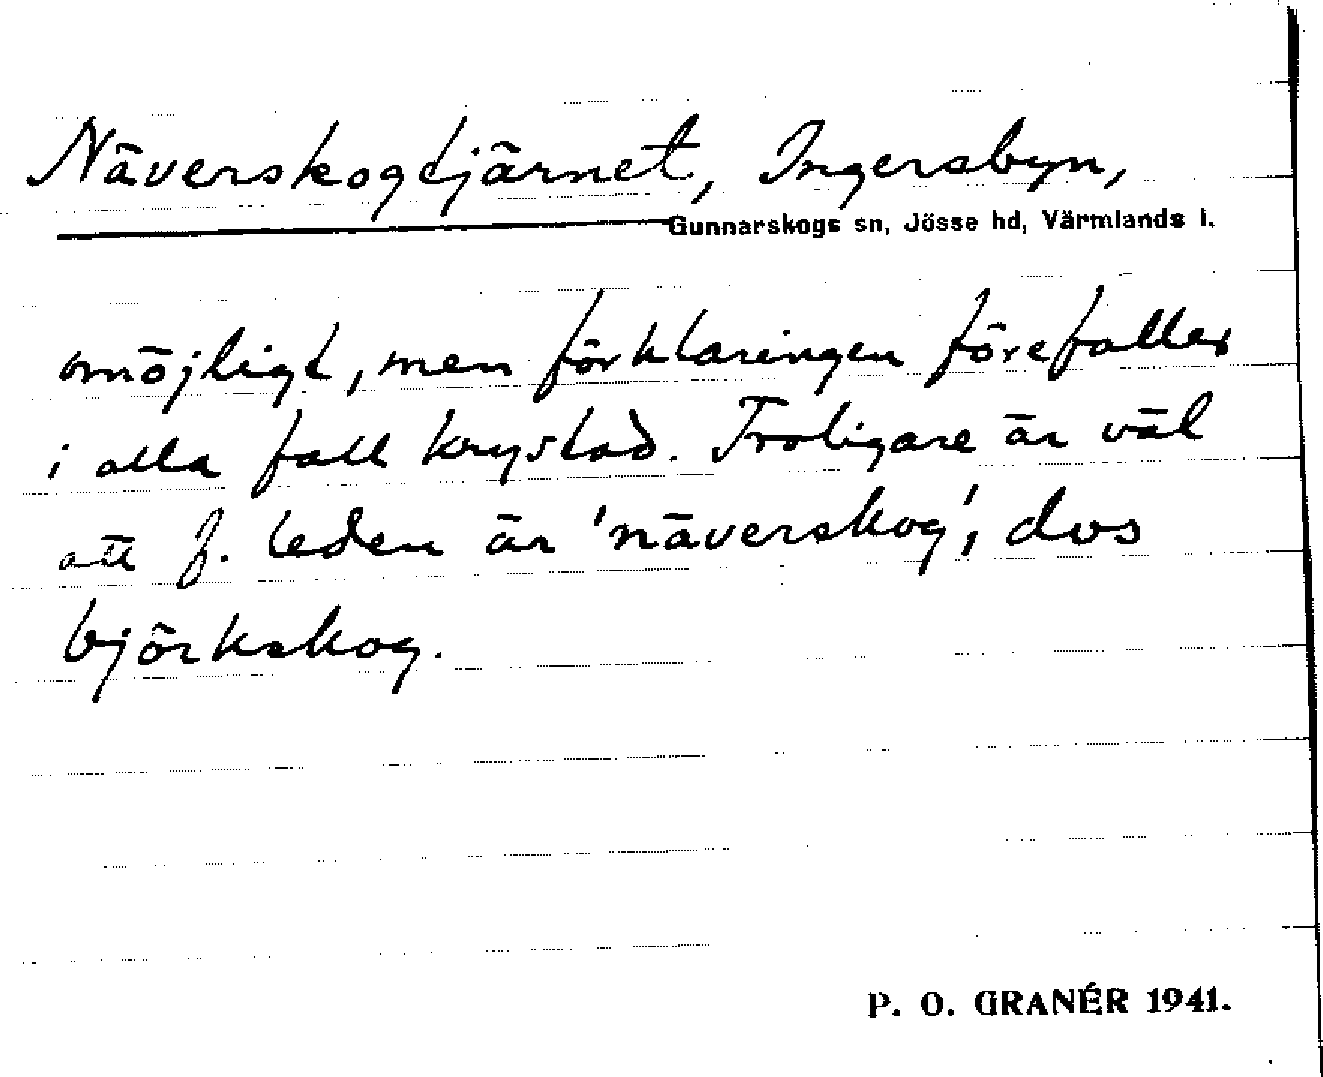 Näverskogtjärnet, Ingersbyn,
Gunnarskogs sn, Jösse hd, Värmlands l.
omöjligt, men förklaringen förefaller
i alla fall krystad. Troligare är väl
att f. leden är 'näverskog', dvs
björkskog.
P. O. GRANÉR 1941.